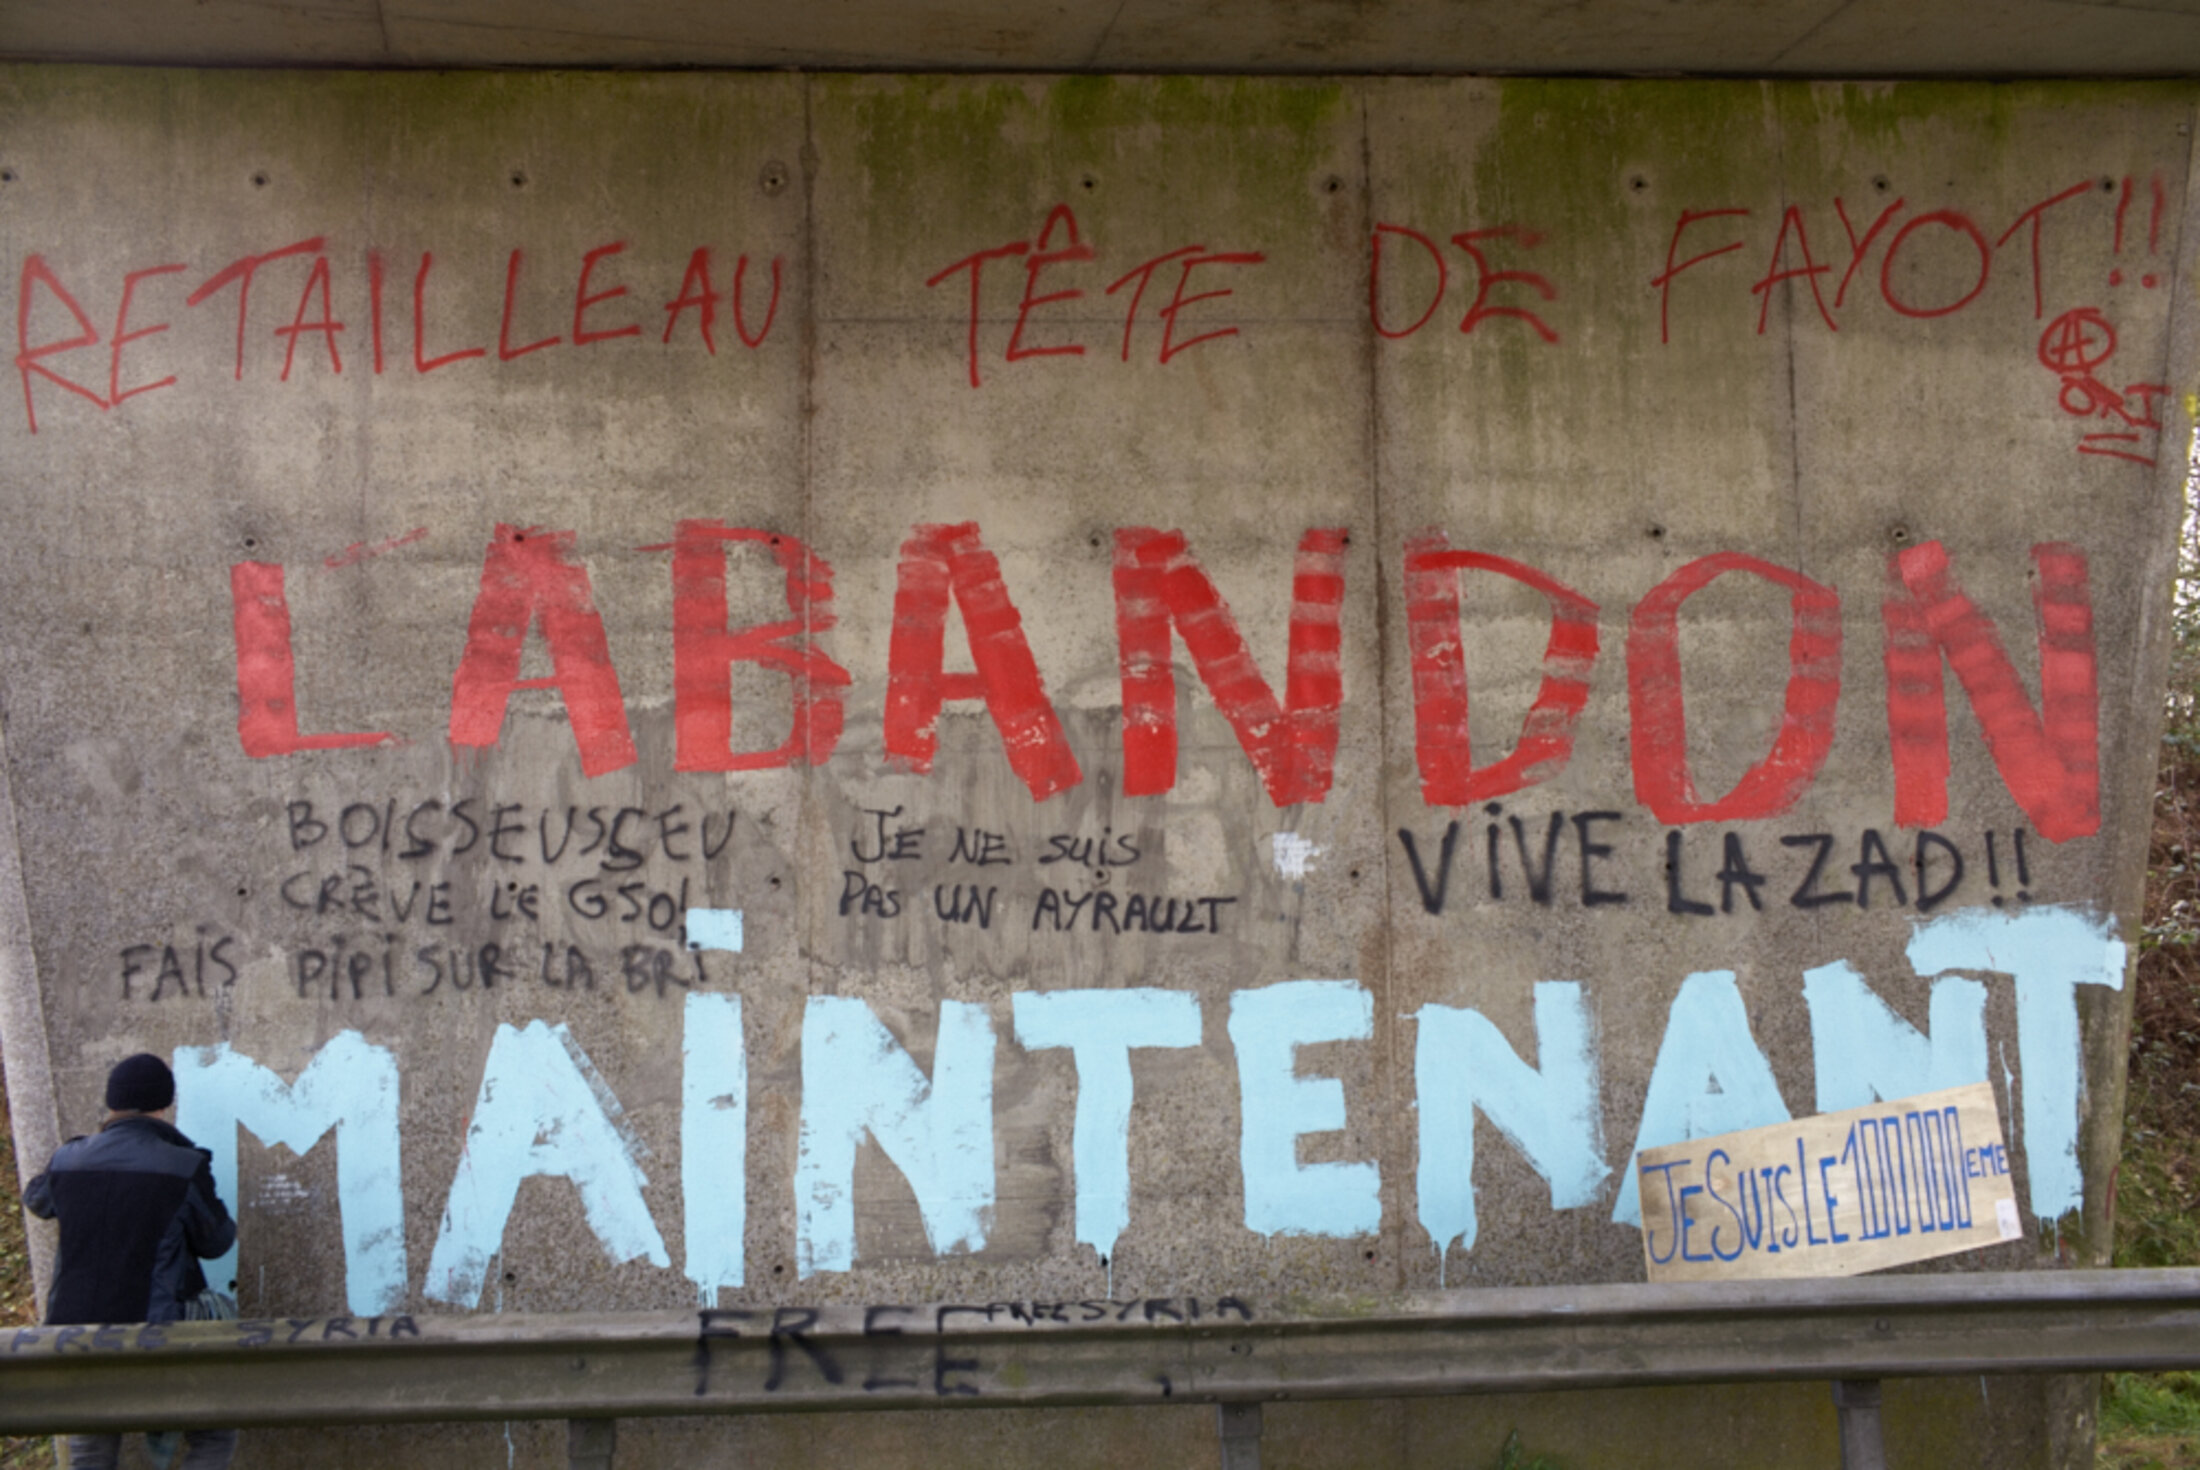 RETAILLEAU TÊTE DE FAYOT!!
L'ABANDON
BOISSEUSSEU
CRÈVE LE GSO!
FAIS PIPI SUR LA BRI
JE NE SUIS
PAS UN AYRAULT
VIVE LA ZAD!!
MAINTENANT
JE SUIS LE 100000EME
FREE SYRIA
FREE
FREE SYRIA